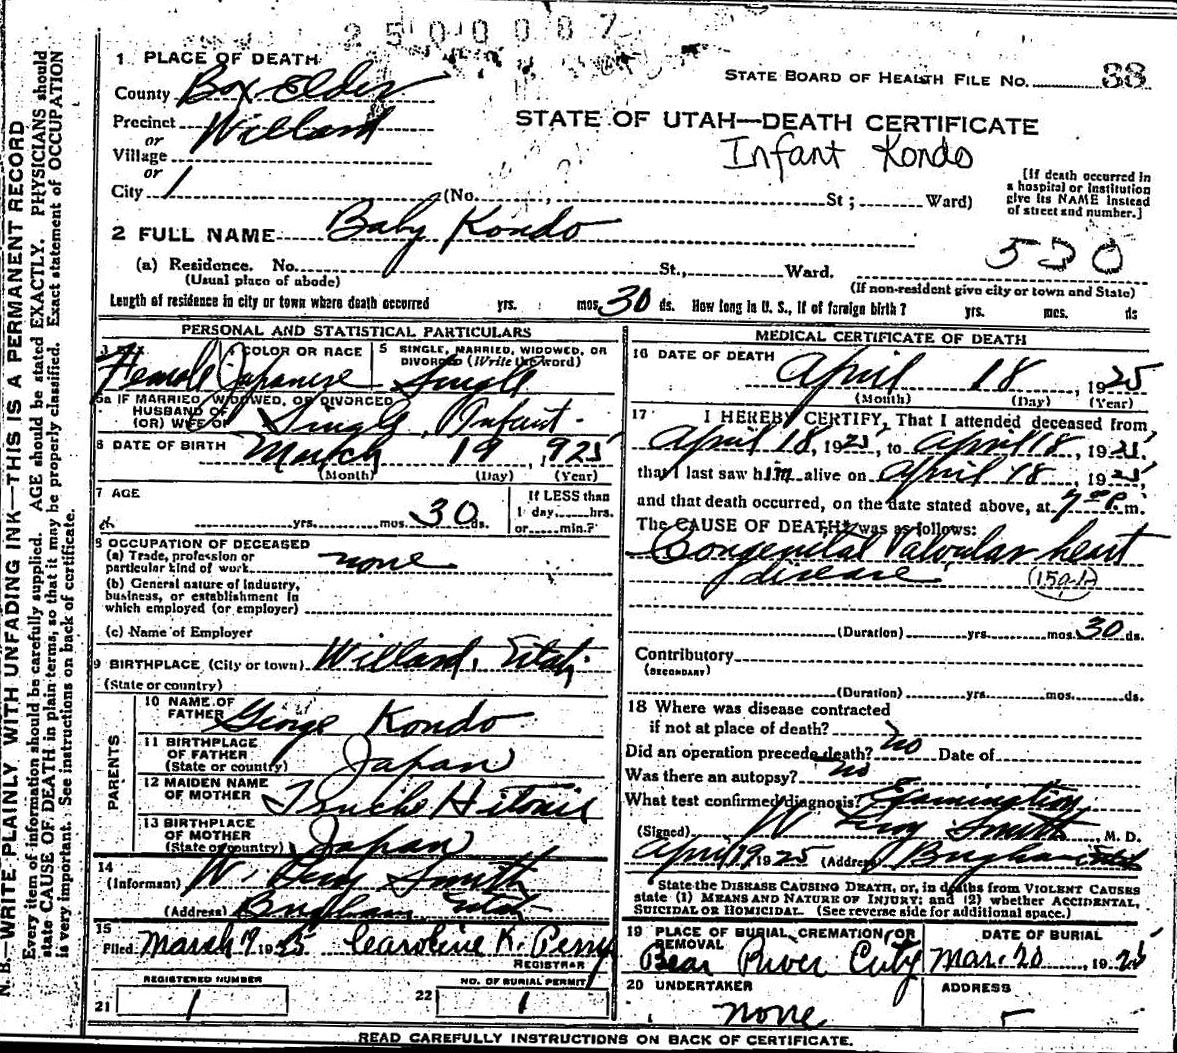 2500087
1 PLACE OF DEATH
STATE BOARD OF HEALTH FILE NO. 38
County Box Elder
Precinct Willard
or
Village
or
STATE OF UTAH—DEATH CERTIFICATE
Infant Kondo
City 1 (No. St; Ward)
[If death occurred in a hospital or institution give its NAME instead of street and number.]
2 FULL NAME Baby Kondo
530
(a) Residence. No. St., Ward.
(Usual place of abode)
(If non-resident give city or town and State)
Length of residence in city or town where death occurred yrs. mos. 30 ds. How long in U. S., if of foreign birth? yrs. mos. ds
PERSONAL AND STATISTICAL PARTICULARS
3 SEX
Female
4 COLOR OR RACE
Japanese
5 SINGLE, MARRIED, WIDOWED, OR DIVORCED (Write the word)
Single
5a IF MARRIED, WIDOWED, OR DIVORCED
HUSBAND OF
(OR) WIFE OF Single Infant.
6 DATE OF BIRTH March 19, 925
(Month) (Day) (Year)
7 AGE
yrs. mos. 30 ds.
If LESS than
1 day, hrs.
or min.?
8 OCCUPATION OF DECEASED
(a) Trade, profession or
particular kind of work none
(b) General nature of industry,
business, or establishment in
which employed (or employer)
(c) Name of Employer
9 BIRTHPLACE (City or town) Willard, Utah.
(State or country)
PARENTS
10 NAME OF
FATHER George Kondo
11 BIRTHPLACE
OF FATHER
(State or country) Japan
12 MAIDEN NAME
OF MOTHER
13 BIRTHPLACE
OF MOTHER
(State or country) Japan
14
(Informant) W. Smith
(Address) Brigham Utah
15
Filed March 1925 Caroline K. Perry
REGISTRAR
REGISTERED NUMBER
21 1
NO. OF BURIAL PERMIT
22 1
MEDICAL CERTIFICATE OF DEATH
16 DATE OF DEATH
April 18, 1925
(Month) (Day) (Year)
17 I HEREBY CERTIFY, That I attended deceased from
April 18, 1925, to April 18, 1925,
that I last saw him alive on April 18, 1925,
and that death occurred, on the date stated above, at 7 00 P. m.
The CAUSE OF DEATH* was as follows:
Congenital Valvular heart
disease
(Duration) yrs. mos. 30 ds.
Contributory
(SECONDARY)
(Duration) yrs. mos. ds.
18 Where was disease contracted
if not at place of death?
Did an operation precede death? no Date of
Was there an autopsy? no
What test confirmed diagnosis? Examination
(Signed) W Smith, M. D.
April 19 1925 (Address) Brigham Utah
State the DISEASE CAUSING DEATH, or, in deaths from VIOLENT CAUSES
state (1) MEANS AND NATURE OF INJURY; and (2) whether ACCIDENTAL,
SUICIDAL OR HOMICIDAL. (See reverse side for additional space.)
19 PLACE OF BURIAL, CREMATION, OR
REMOVAL
Bear River City
DATE OF BURIAL
Mar. 20, 1925
20 UNDERTAKER
none
ADDRESS
READ CAREFULLY INSTRUCTIONS ON BACK OF CERTIFICATE.
N. B.—WRITE PLAINLY WITH UNFADING INK—THIS IS A PERMANENT RECORD
Every item of information should be carefully supplied. AGE should be stated EXACTLY. PHYSICIANS should
state CAUSE OF DEATH in plain terms, so that it may be properly classified. Exact statement of OCCUPATION
is very important. See instructions on back of certificate.